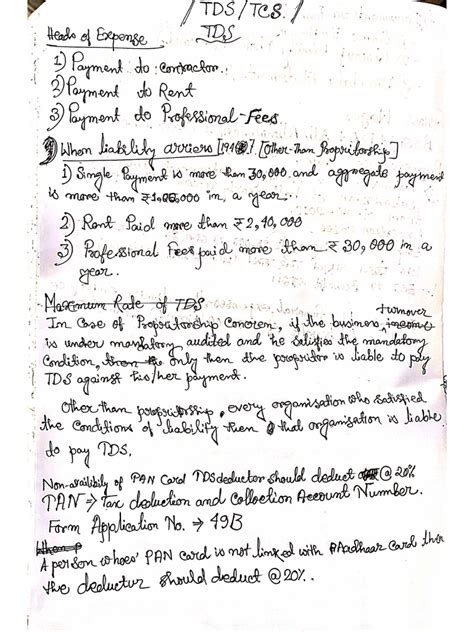 TDS/TCS.
Heads of Expense TDS
1) Payment to contractor.
2) Payment to Rent
3) Payment to Professional-Fees
When liability arriers [194] [Other-Than Propritorship]
1) Single Payment is more than 30,000 and aggregate payment
is more than ₹1,00,000 in, a year..
2) Rent Paid more than ₹2,40,000
3) Professional Fees paid more than ₹30,000 in a
year..
Maximum Rate of TDS
turnover
In Case of Propritorship Concren, if the business, income
is under mandatory audited and he satisfies the mandatory
Condition, then the only then the propritor is liable to pay
TDS against his/her payment.
Other than propritorship, every organisation who satisfied
the Conditions of liability then that organisation is liable
to pay TDS.
Non-availibily of PAN Card TDS deductor should deduct @ 20%
TAN ⇒ Tax deduction and Collection Account Number.
Form Application No. → 49B
A person whoes' PAN card is not linked with Aadhaar Card then
the deductur should deduct @20%..